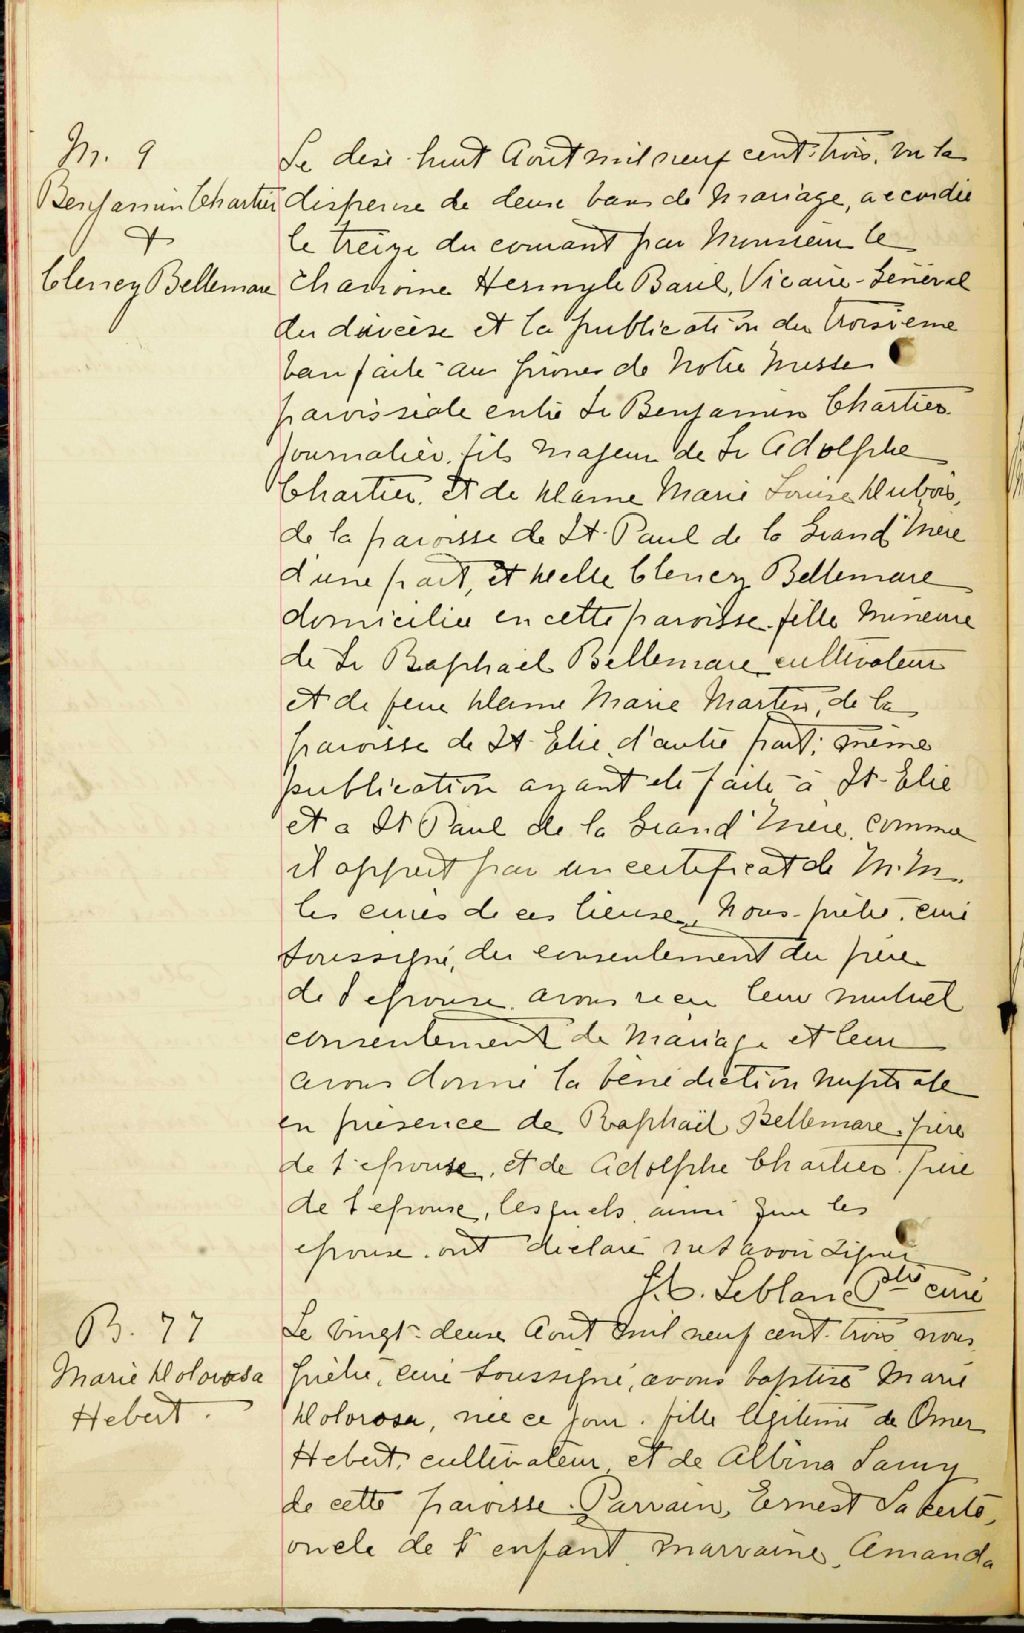 M. 9
Benjamin Chartier
+
Clency Bellemare
Le dix-huit Août mil neuf cent-trois, vu la
dispense de deux bans de mariage, accordée
le treize du courant par Monsieur le
Chanoine Hermyle Baril, Vicaire-Général
du diocèse et la publication du troisième
ban faite au prône de notre messe
paroissiale entre Sr Benjamin Chartier
journalier, fils majeur de Sr Adolphe
Chartier, et de Dame Marie Louise Dubois,
de la paroisse de St-Paul de la Grand'Mère
d'une part, et Delle Clency Bellemare
domiciliée en cette paroisse, fille mineure
de Sr Raphaël Bellemare, cultivateur
et de feue Dame Marie Martin, de la
paroisse de St-Elie, d'autre part; même
publication ayant été faite à St-Elie
et a St Paul de la Grand'Mère, comme
il appert par un certificat de M.M.
les curés de ces lieux, Nous-prêtre, curé
soussigné, du consentement du père
de l'epouse, avons recu leur mutuel
consentement de Mariage et leur
avons donné la bénédiction nuptiale
en présence de Raphaël Bellemare, père
de l'epouse, et de Adolphe Chartier, père
de l'epoux, lesquels, ainsi que les
epoux, ont déclaré ne savoir signer
J.C. Leblanc Ptre curé
B. 77
Marie Dolorosa
Hebert.
Le vingt-deux Aout mil neuf cent-trois, nous
prêtre, curé soussigné, avons baptisé Marie
Dolorosa, née ce jour, fille légitime de Omer
Hebert, cultivateur, et de Albina Lamy
de cette paroisse. Parrain, Ernest Lacerte,
oncle de l'enfant, marraine, Amanda